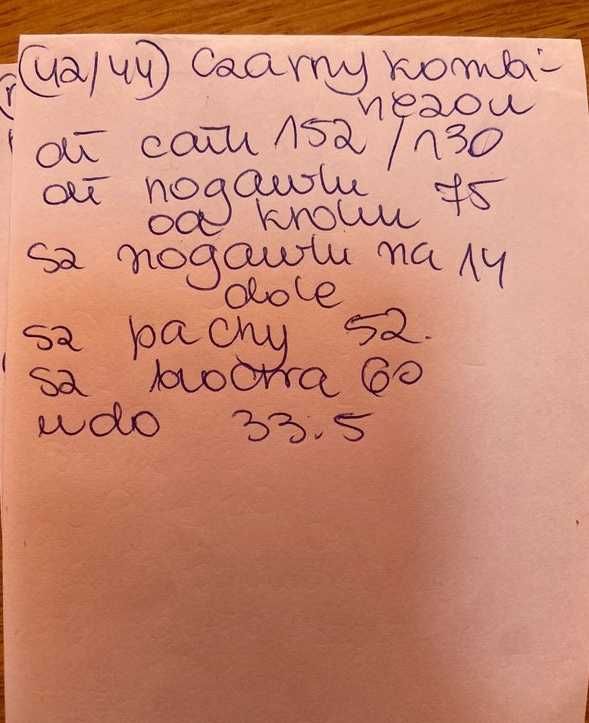 (42/44) czarny kombi-
nezon
dł całk 152 / 130
dł nogawki 75
od kroku
sz nogawki na 14
dole
sz pachy 52.
sz biodra 60
udo 33.5